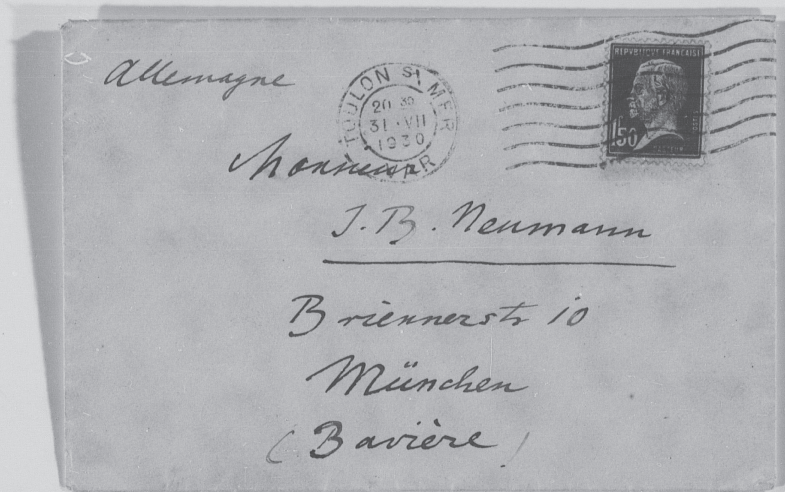 Allemagne
TOULON S/ MER
20 30
31 · VII
1930
VAR
REPUBLIQUE FRANÇAISE
1F50
PASTEUR
Monsieur
J. B. Neumann
Briennerstr 10
München
(Bavière)